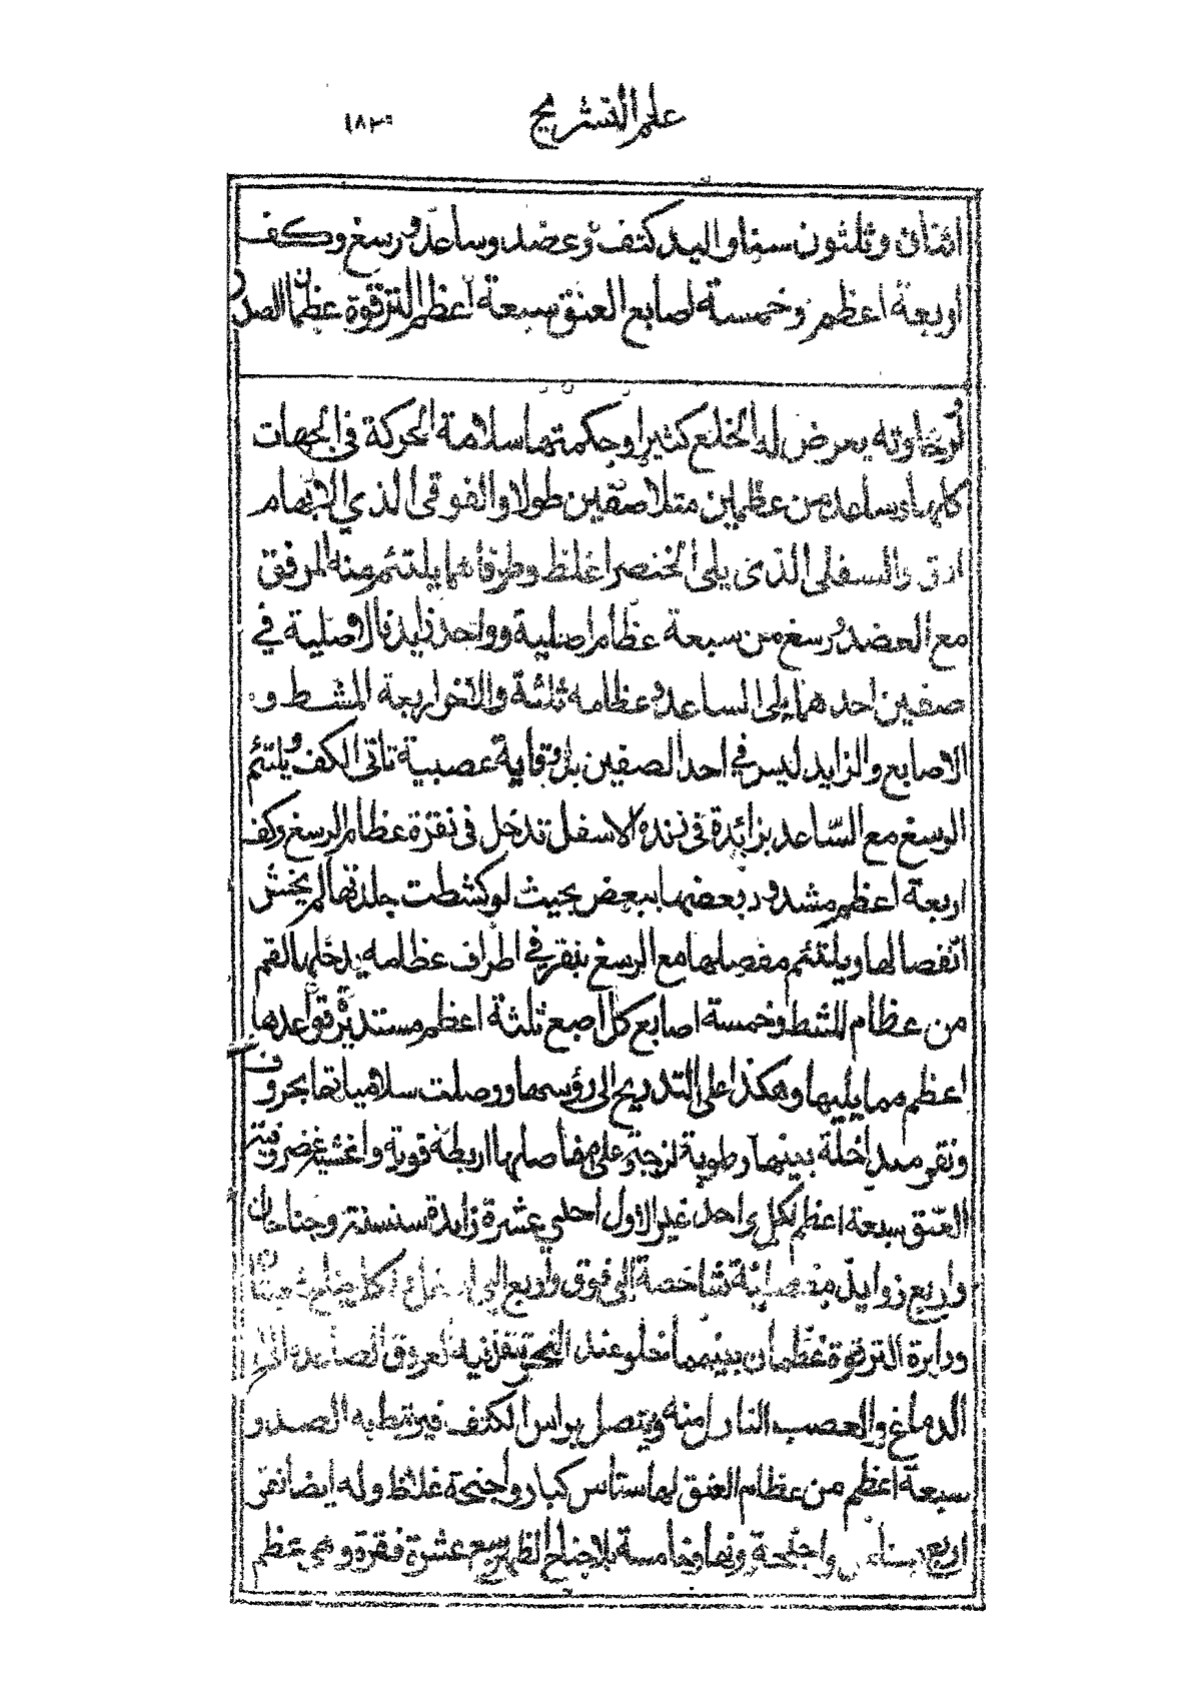 علم التشريح ١٨٣
اثنان وثلثون سنا واليد كتف وعضد وساعد ورسغ وكف
اربعة اعظم وخمسة اصابع العنق سبعة اعظم الترقوة عظمان الصدر
لرخاوته يعرض له الخلع كثيرا وحكمتها سلامة الحركة في الجهات
كلها وساعد من عظمين متلاصقين طولا والفوقى الذي الابهام
ادق والسفلى الذى يلى الخنصر اغلظ وطرفاهما يلتئم منه المرفق
مع العضد ورسغ من سبعة عظام اصلية وواحد زايد فالاصلية في
صفين احدهما يلى الساعد وعظامه ثلثة والاخر اربعة المشط و
الاصابع والزايد ليس في احد الصفين بل وقاية عصبية تاتى الكف ويلتئم
الرسغ مع الساعد بزائدة فى زنده الاسفل تدخل فى نقرة عظام الرسغ وكف
اربعة اعظم مشدود بعضها ببعض بحيث لو كشطت جلدتها لم يخش
انفصالها ويلتئم مفصلها مع الرسغ بنقر في اطراف عظامه يدخلها لقم
من عظام المشط وخمسة اصابع كل اصبع ثلثة اعظم مستديرة قواعدها
اعظم مما يليها وهكذا على التدريج الى رؤسها ووصلت سلامياتها بحروف
ونقر متداخلة بينها رطوبة لزجة وعلى مفاصلها اربطة قوية واغشية غضروفية
العنق سبعة اعظم لكل واحد غير الاول احدى عشرة زايدة سنسنة وجناحان
واربع زوايد مفصلية شاخصة الى فوق واربع الى اسفل
الترقوة عظمان بينهما خلو عند النحر تنفذ فيه العروق الصاعدة الى
الدماغ والعصب النازل منه ويتصل براس الكتف فيرتبط به الصدر
سبعة اعظم من عظام العنق لها سناسن كبار واجنحة غلاظ وله ايضا فقر
اربع واجنحة وخامسة بلا جناح الظهر سبع عشرة فقرة وهى عظم